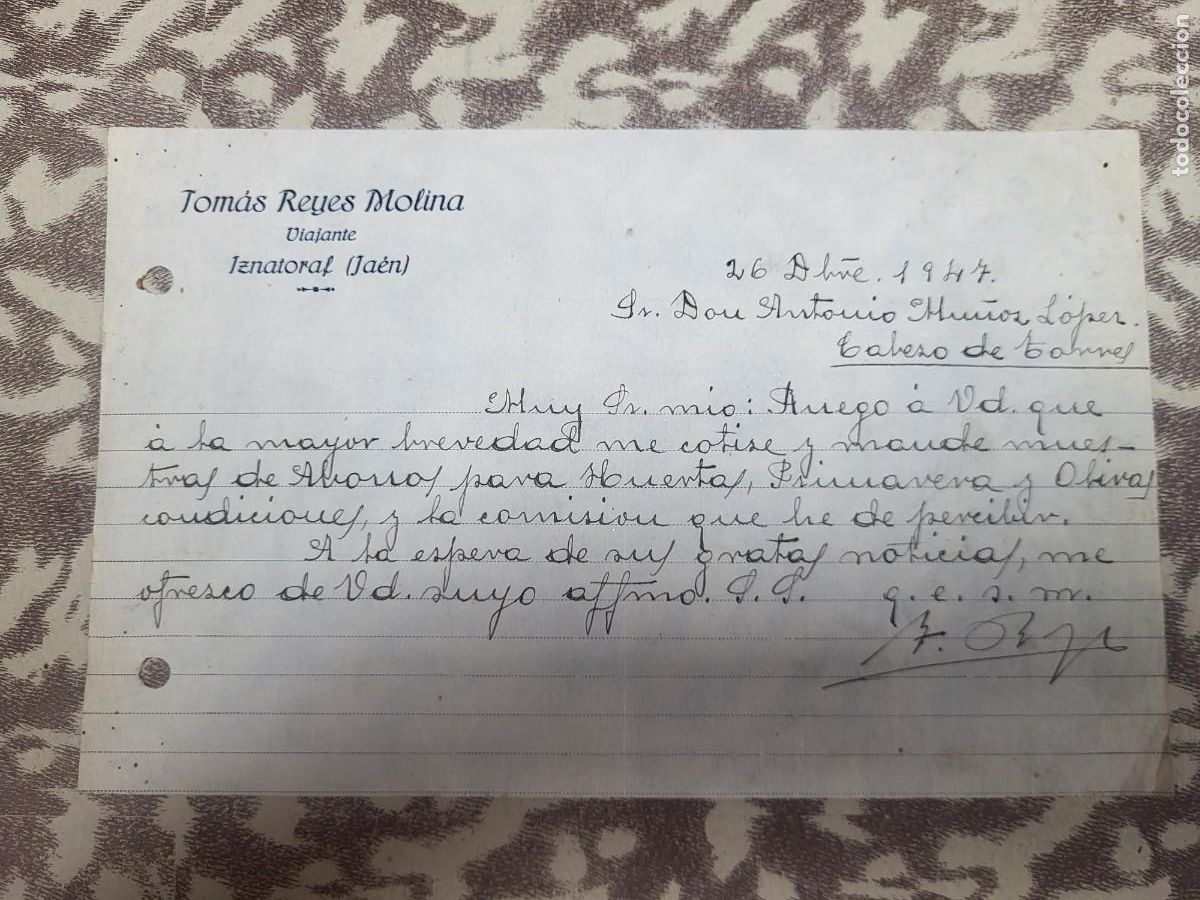 Tomás Reyes Molina
Viajante
Iznatoraf (Jaén)
26 Dbre. 1947.
Sr. Don Antonio Muñoz López.
Cabezo de Torres
Muy Sr. mio: Ruego á Vd. que
á la mayor brevedad me cotize y mande mues-
tras de Abonos para Huertas, Primavera y Olivas
condiciones, y la comision que he de percibir.
A la espera de sus gratas noticias, me
ofrezco de Vd. suyo affmo. S. S. q. e. s. m.
T. Reyes
todocoleccion